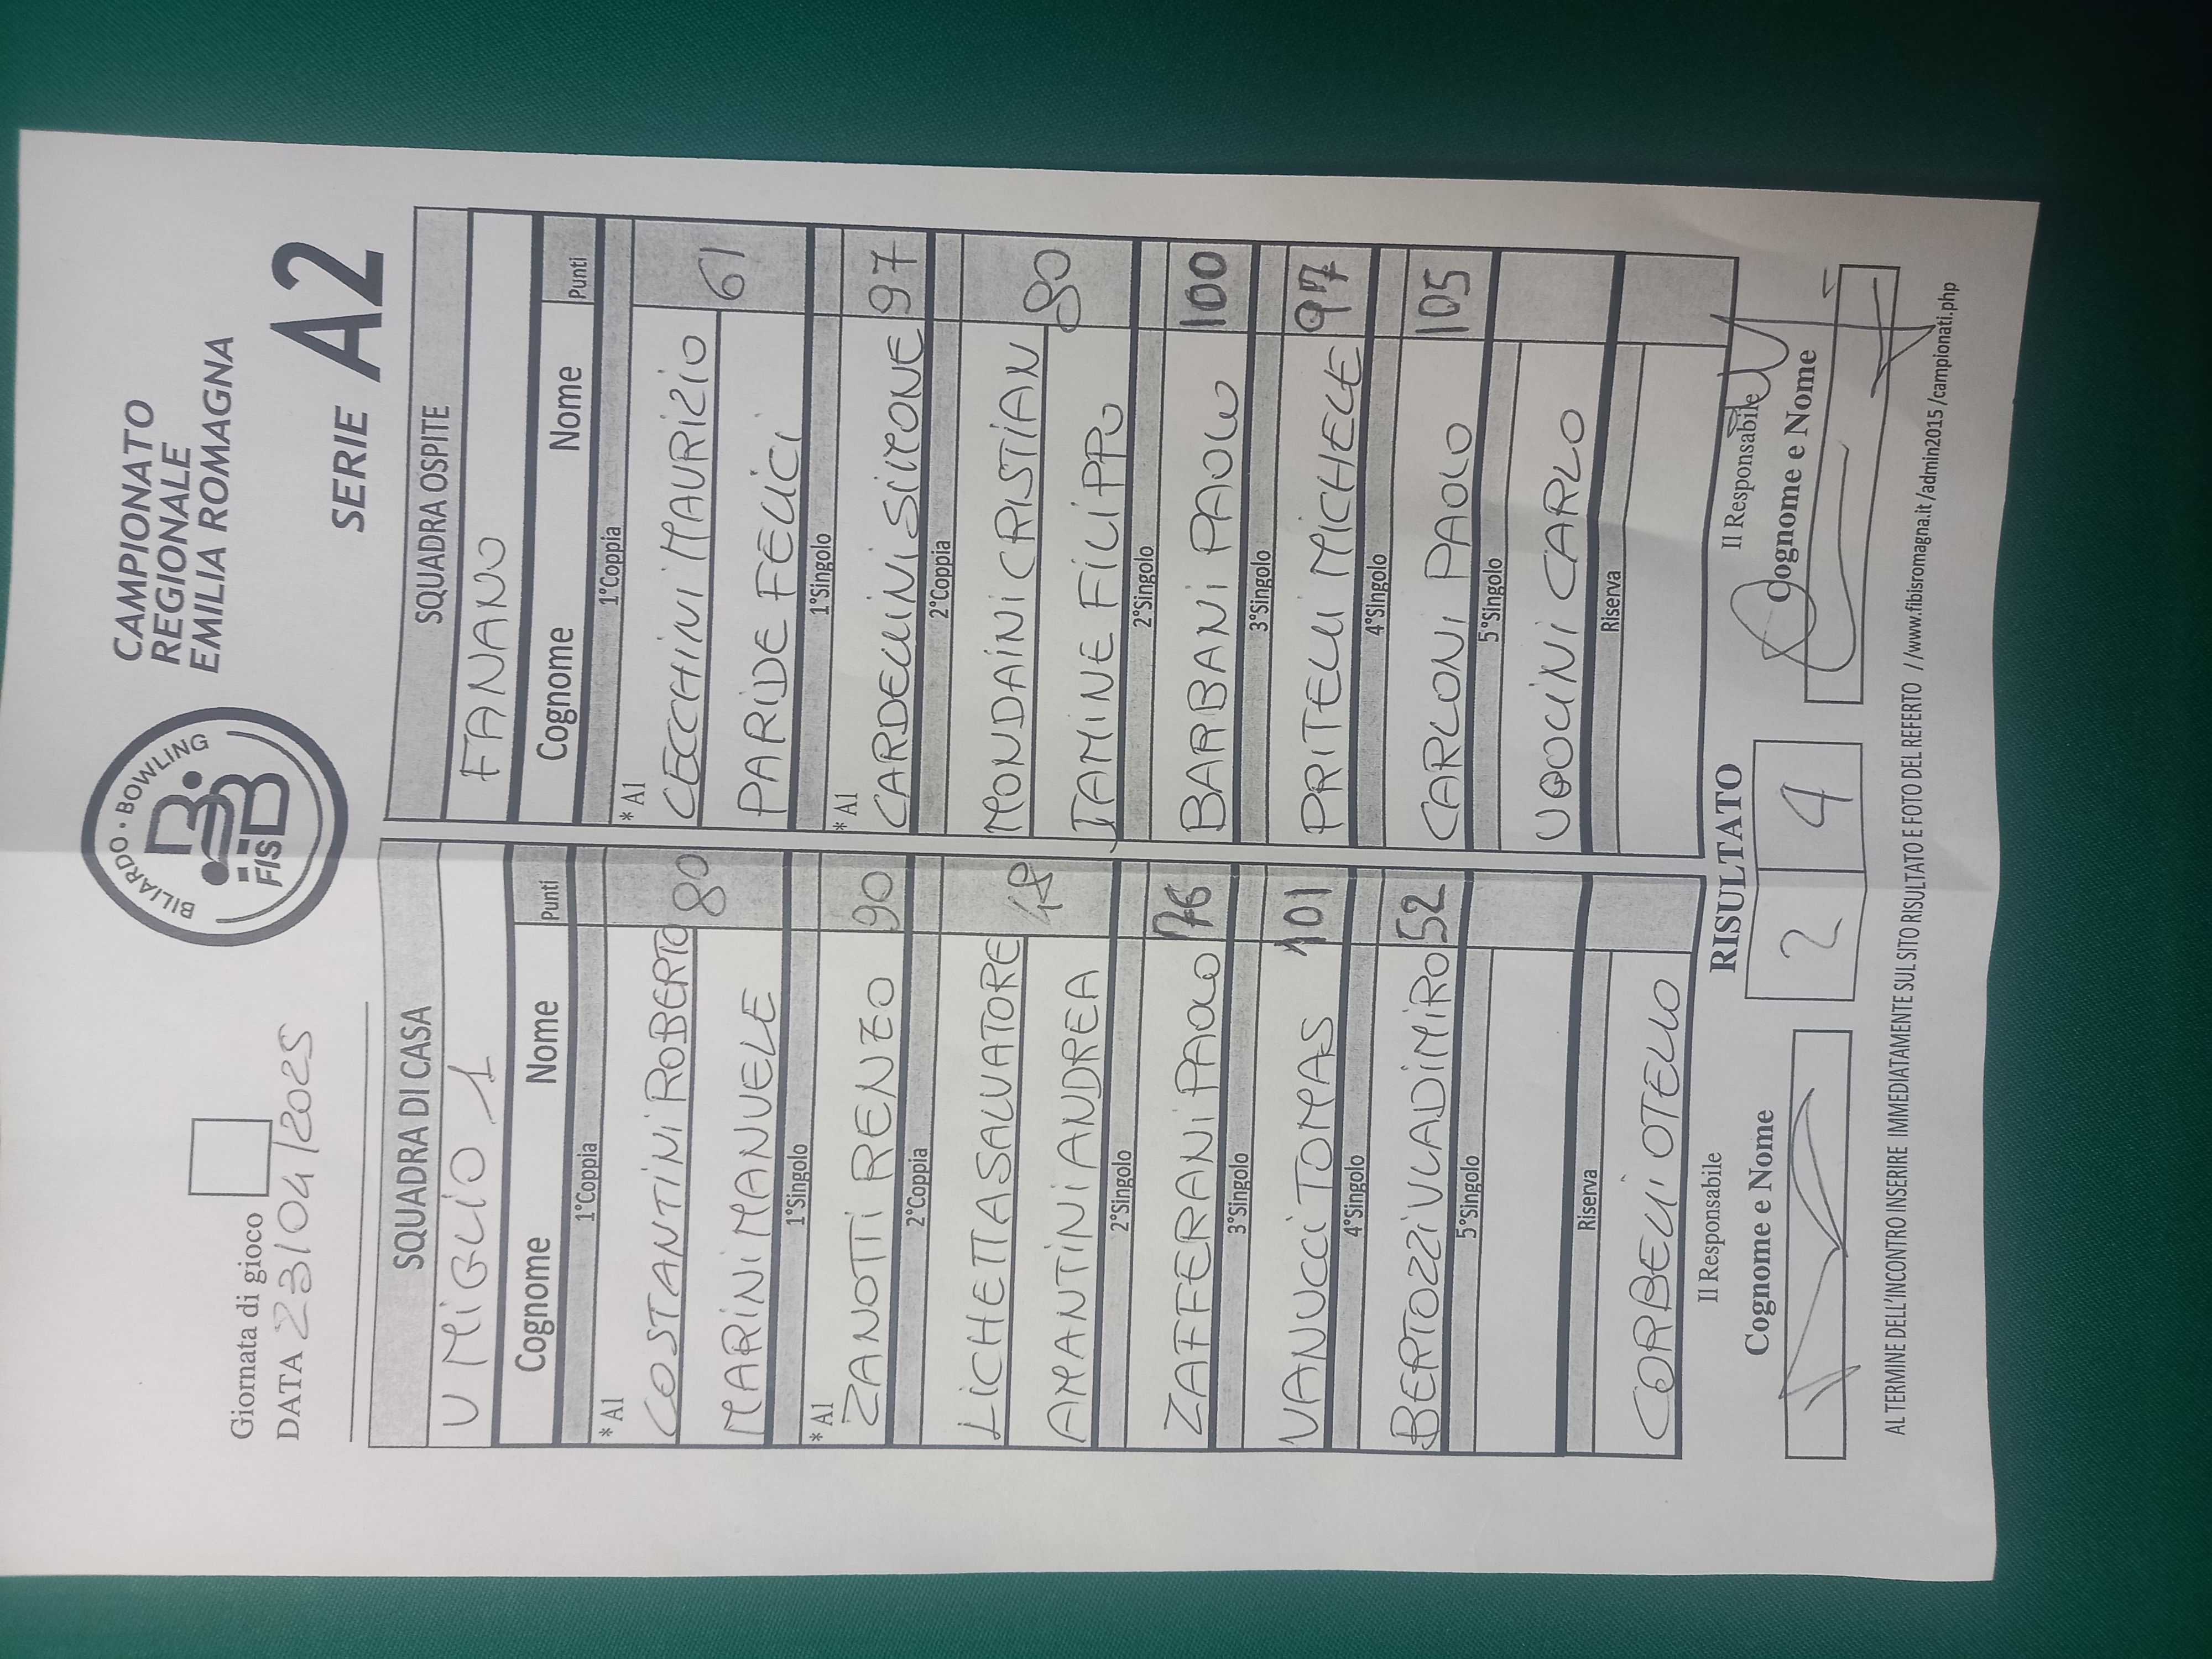 Giornata di gioco
DATA 23/04/2025
BILIARDO · BOWLING
FISBB
CAMPIONATO
REGIONALE
EMILIA ROMAGNA
SERIE A2
SQUADRA DI CASA
V MIGLIO 1
Cognome Nome Punti
1°Coppia
*A1
COSTANTINI ROBERTO
80
MARINI MANUELE
1°Singolo
*A1
ZANOTTI RENZO 90
2°Coppia
LICHETTA SALVATORE
48
AMANTINI ANDREA
2°Singolo
ZAFFERANI PAOLO 76
3°Singolo
VANUCCI TOMAS 101
4°Singolo
BERTOZZI VLADIMIRO 52
5°Singolo
Riserva
CORBELLI OTELLO
SQUADRA OSPITE
FANANO
Cognome Nome Punti
1°Coppia
*A1
CECCHINI MAURIZIO
61
PARIDE FELICI
1°Singolo
*A1
CARDELLINI SIMONE 97
2°Coppia
MONDAINI CRISTIAN
80
TAMINE FILIPPO
2°Singolo
BARBANI PAOLO 100
3°Singolo
PRITELLI MICHELE 97
4°Singolo
CARLONI PAOLO 105
5°Singolo
UGOLINI CARLO
Riserva
Il Responsabile
Cognome e Nome
RISULTATO
2 4
Il Responsabile
Cognome e Nome
AL TERMINE DELL'INCONTRO INSERIRE IMMEDIATAMENTE SUL SITO RISULTATO E FOTO DEL REFERTO //www.fibisromagna.it /admin2015 /campionati.php